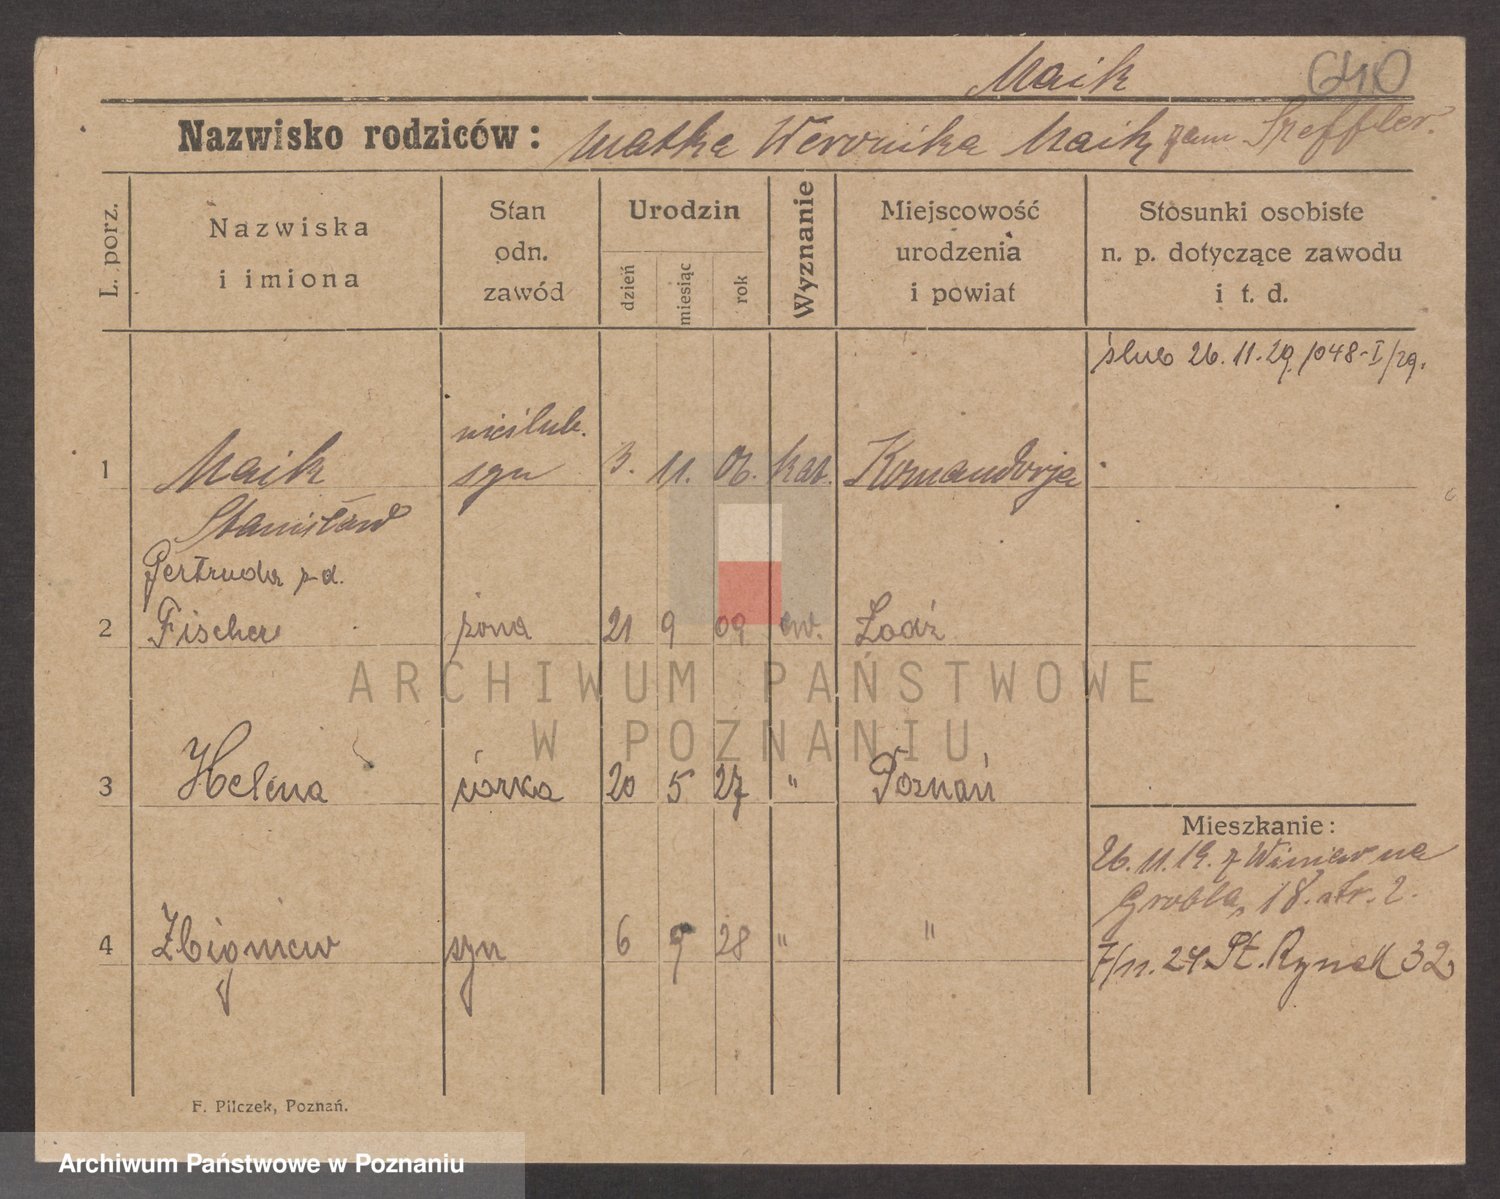 Maik
Nazwisko rodziców: matka Weronika Maik, zam Szeffler.
L. porz.
Nazwiska
i imiona
Stan
odn.
zawód
Urodzin
dzień
miesiąc
rok
Wyznanie
Miejscowość
urodzenia
i powiat
Stosunki osobiste
n. p. dotyczące zawodu
i t. d.
ślub 26. 11. 29. 1048-I/29.
nieślub.
1 Maik syn 3. 11. 06. kat. Komandorja
Stanisław
Gertruda z d.
2 Fischer żona 21 9 09 ew. Łodź
ARCHIWUM PAŃSTWOWE
W POZNANIU
3 Helena córka 20 5 27 " Poznań
Mieszkanie:
26. 11. 19. z Winiew na
Grobla, 18. str. 2.
4 Zbigniew syn 6 9 28 " "
7/11. 24. St. Rynek 32
F. Pilczek, Poznań.
Archiwum Państwowe w Poznaniu